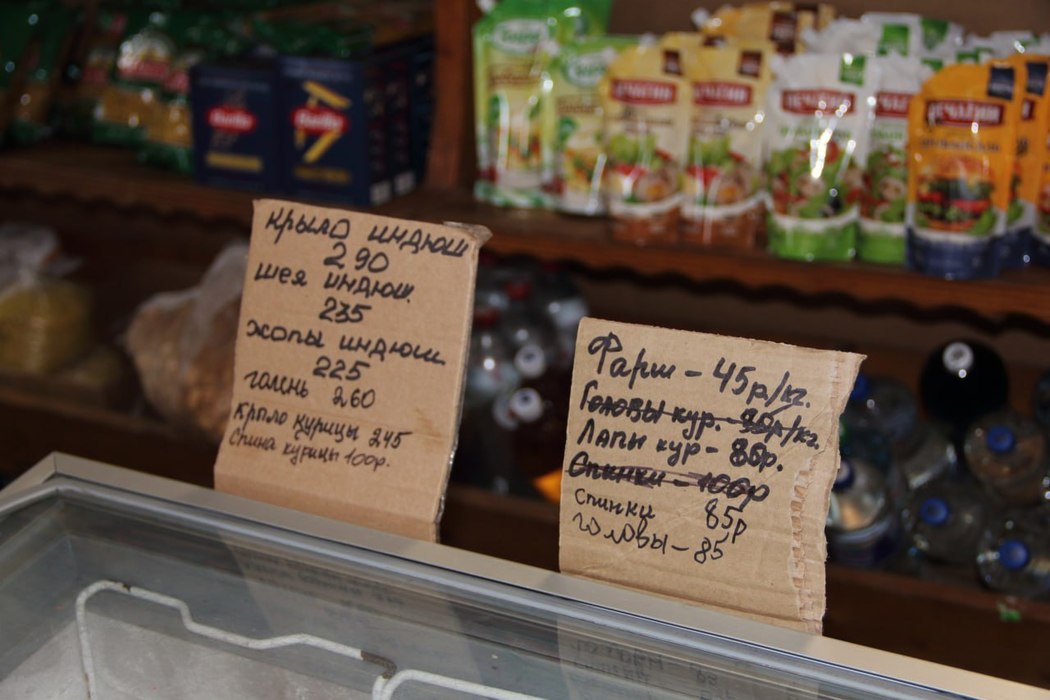 Крыло индюш
290
шея индюш.
235
жопы индюш.
225
голень 260
Крпло курицы 245
Спина курицы 100р.
Фарш - 45р/кг.
Головы кур. - 90р/кг.
Лапы кур - 86р.
Спинки - 100р
спинки 85р
головы - 85
Barilla
Barilla
ПЕЧАГИН
ПЕЧАГИН
ПЕЧАГИН
ПЕЧАГИН